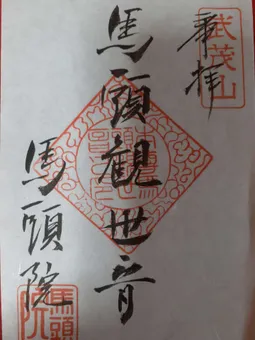 奉拝
武茂山
馬頭観世音
馬頭院
馬頭院